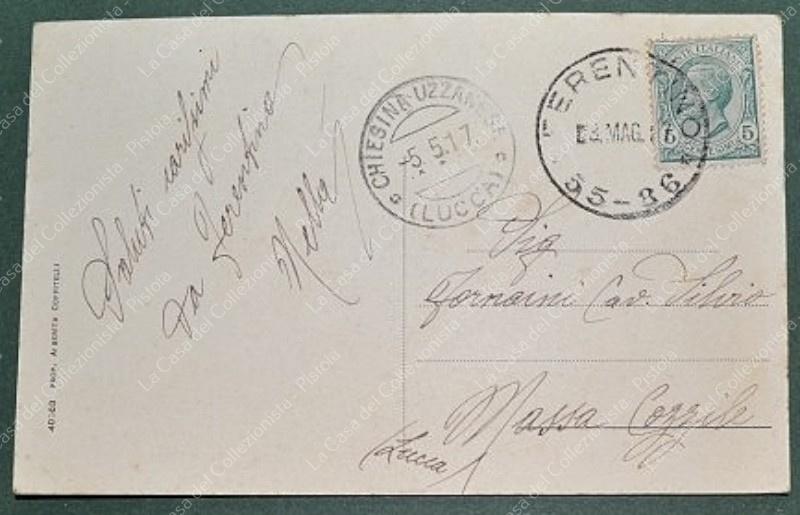 Saluti carissimi
da Ferentino
Nella
CHIESINA UZZANESE
5.5.17.
(LUCCA)
FERENTINO
MAG.
55-86
POSTE ITALIANE
5 5
Sig
Fornaini Cav. Silvio
Massa Cozzile
(Lucca)
PROP. ALBERTA COPPITELLI
La Casa del Collezionista - Pistoia